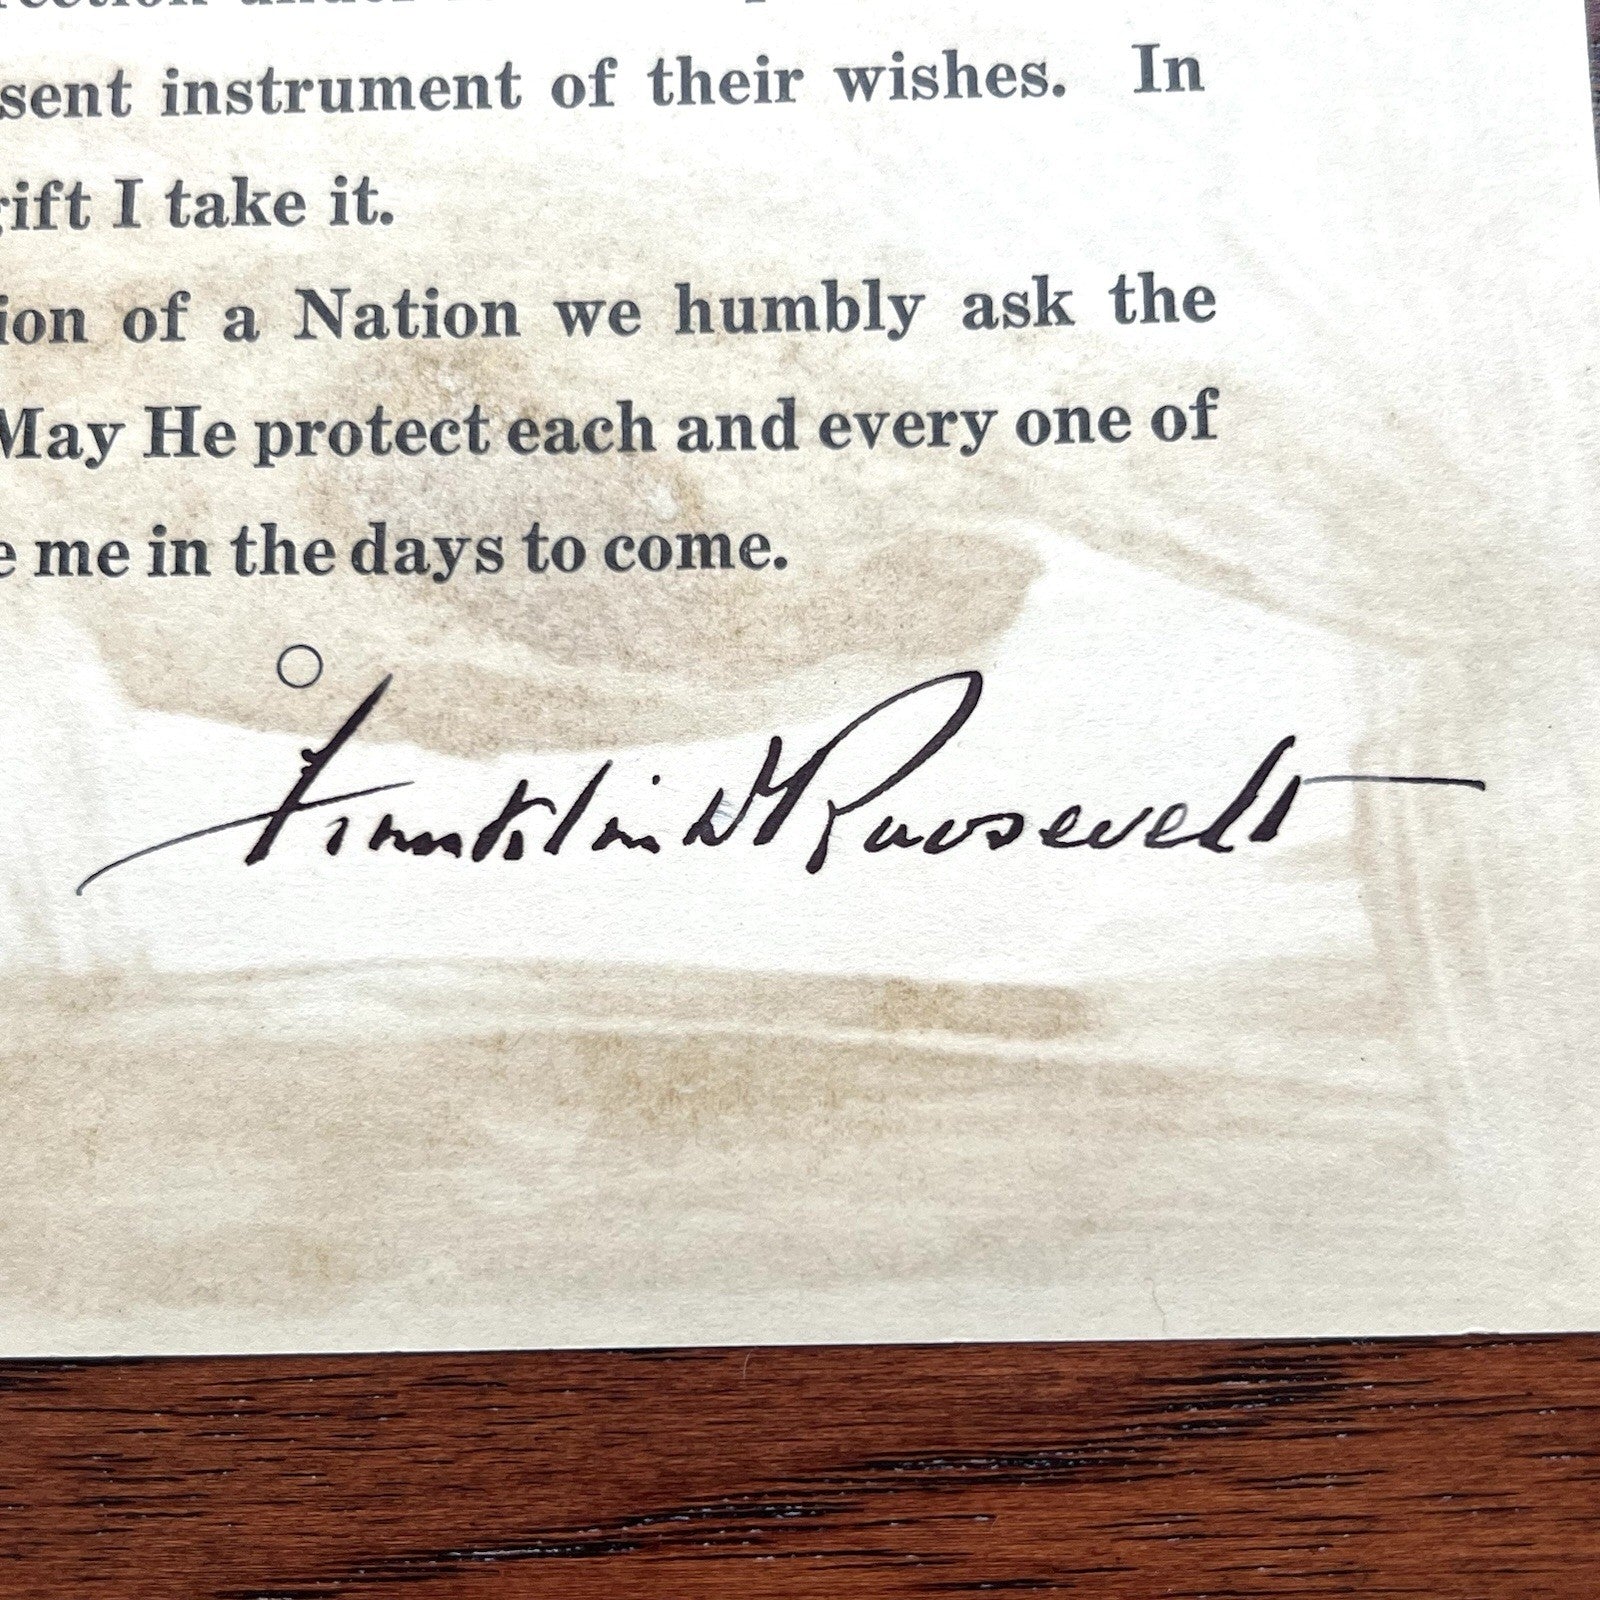 sent instrument of their wishes. In
ift I take it.
ion of a Nation we humbly ask the
May He protect each and every one of
e me in the days to come.
Franklin D Roosevelt